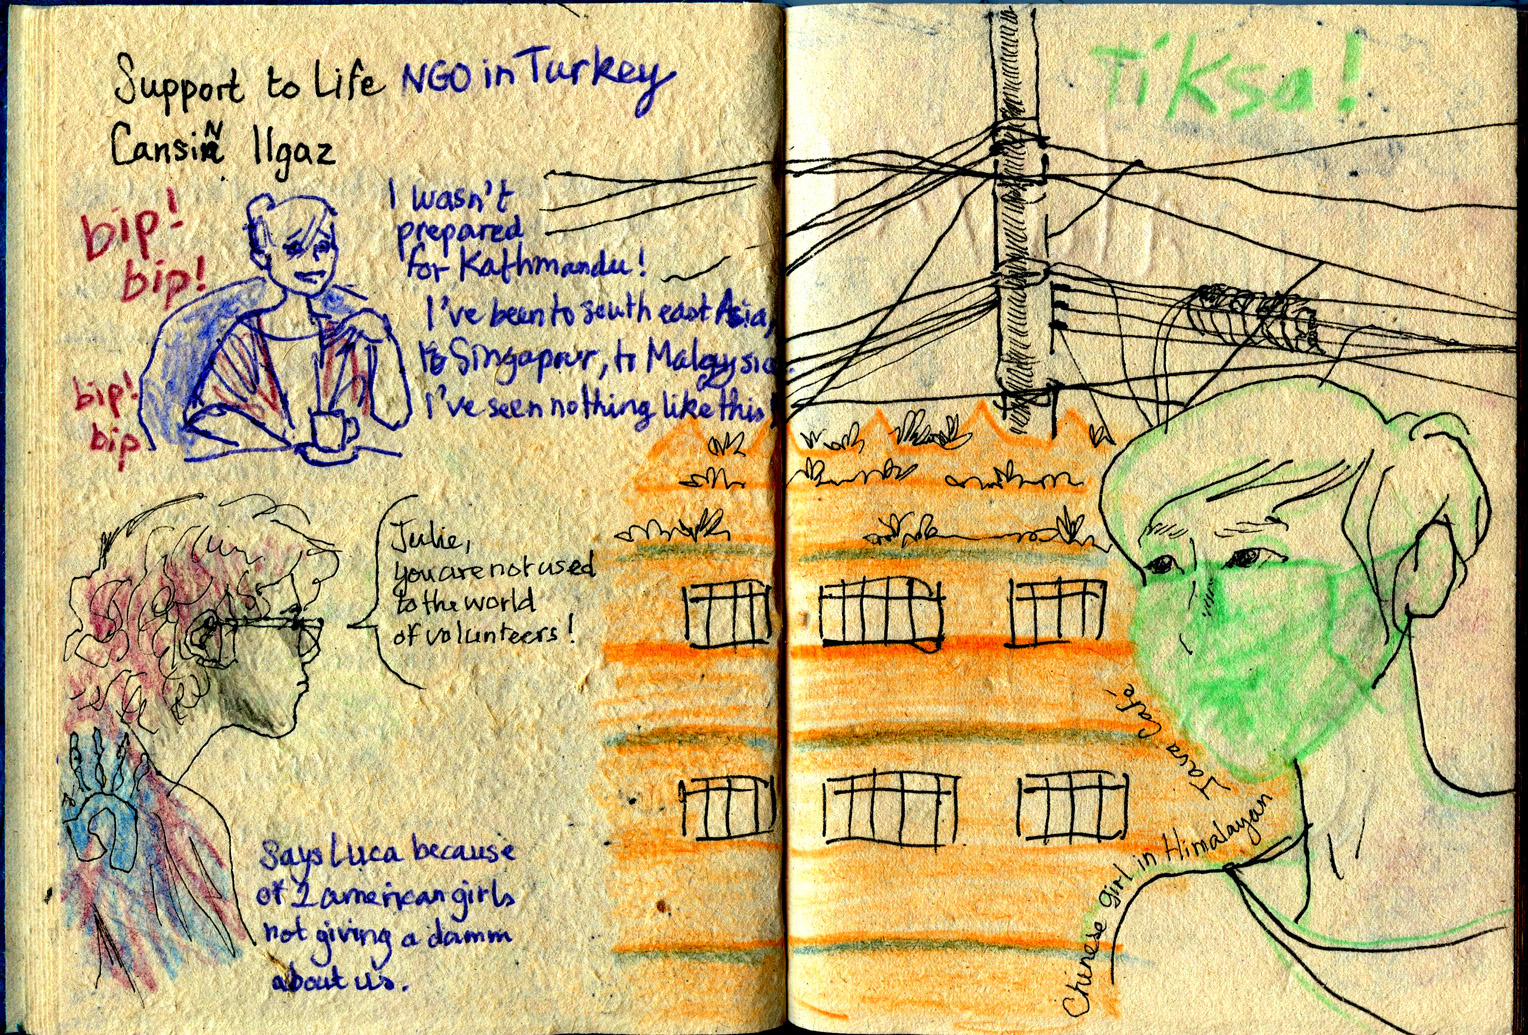 Support to Life NGO in Turkey
Cansin N Ilgaz
bip!
bip!
bip!
bip
I wasn't
prepared
for Kathmandu!
I've been to south east Asia,
to Singapour, to Malaysia.
I've seen nothing like this
Julie,
you are not used
to the world
of volunteers!
Says Luca because
of 2 american girls
not giving a damm
about us.
Tiksa!
Chinese girl in Himalayan
Java Café